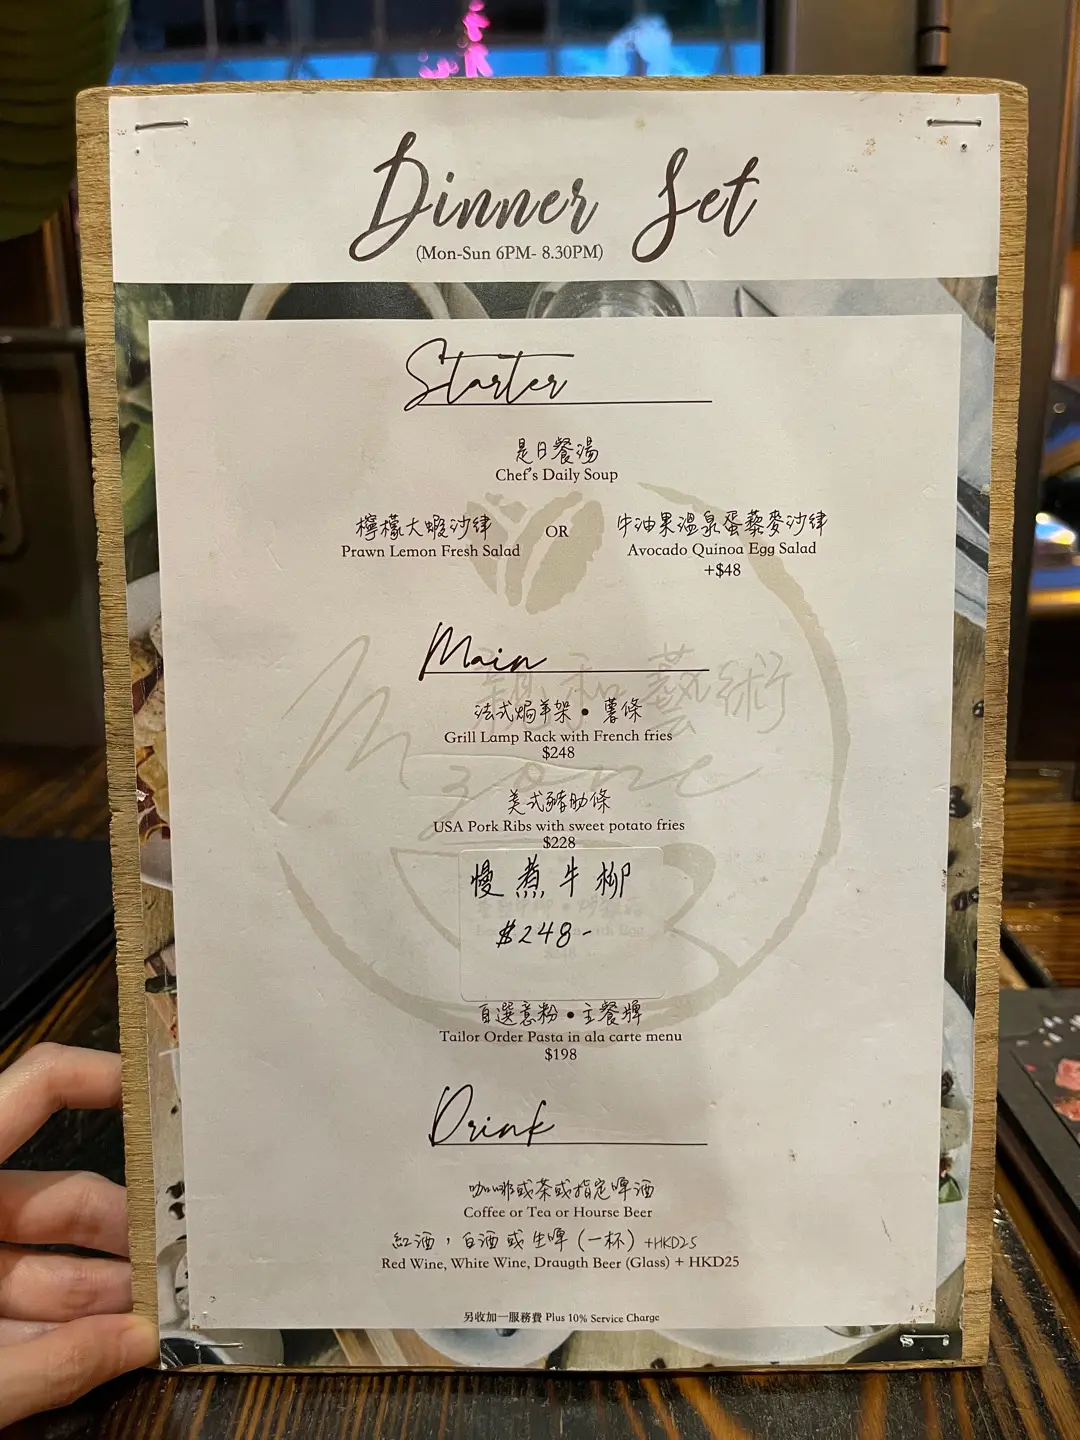 Dinner Set
(Mon-Sun 6PM- 8.30PM)
Starter
是日餐湯
Chef's Daily Soup
檸檬大蝦沙律
Prawn Lemon Fresh Salad
OR
牛油果溫泉蛋藜麥沙律
Avocado Quinoa Egg Salad
+$48
Main
法式焗羊架 • 薯條
Grill Lamp Rack with French fries
$248
美式豬肋條
USA Pork Ribs with sweet potato fries
$228
慢煮牛柳
$248-
自選意粉 • 主餐牌
Tailor Order Pasta in ala carte menu
$198
Drink
咖啡或茶或指定啤酒
Coffee or Tea or Hourse Beer
紅酒，白酒或生啤 (一杯) +HKD25
Red Wine, White Wine, Draugth Beer (Glass) + HKD25
另收加一服務費 Plus 10% Service Charge
親和藝術
Mzone